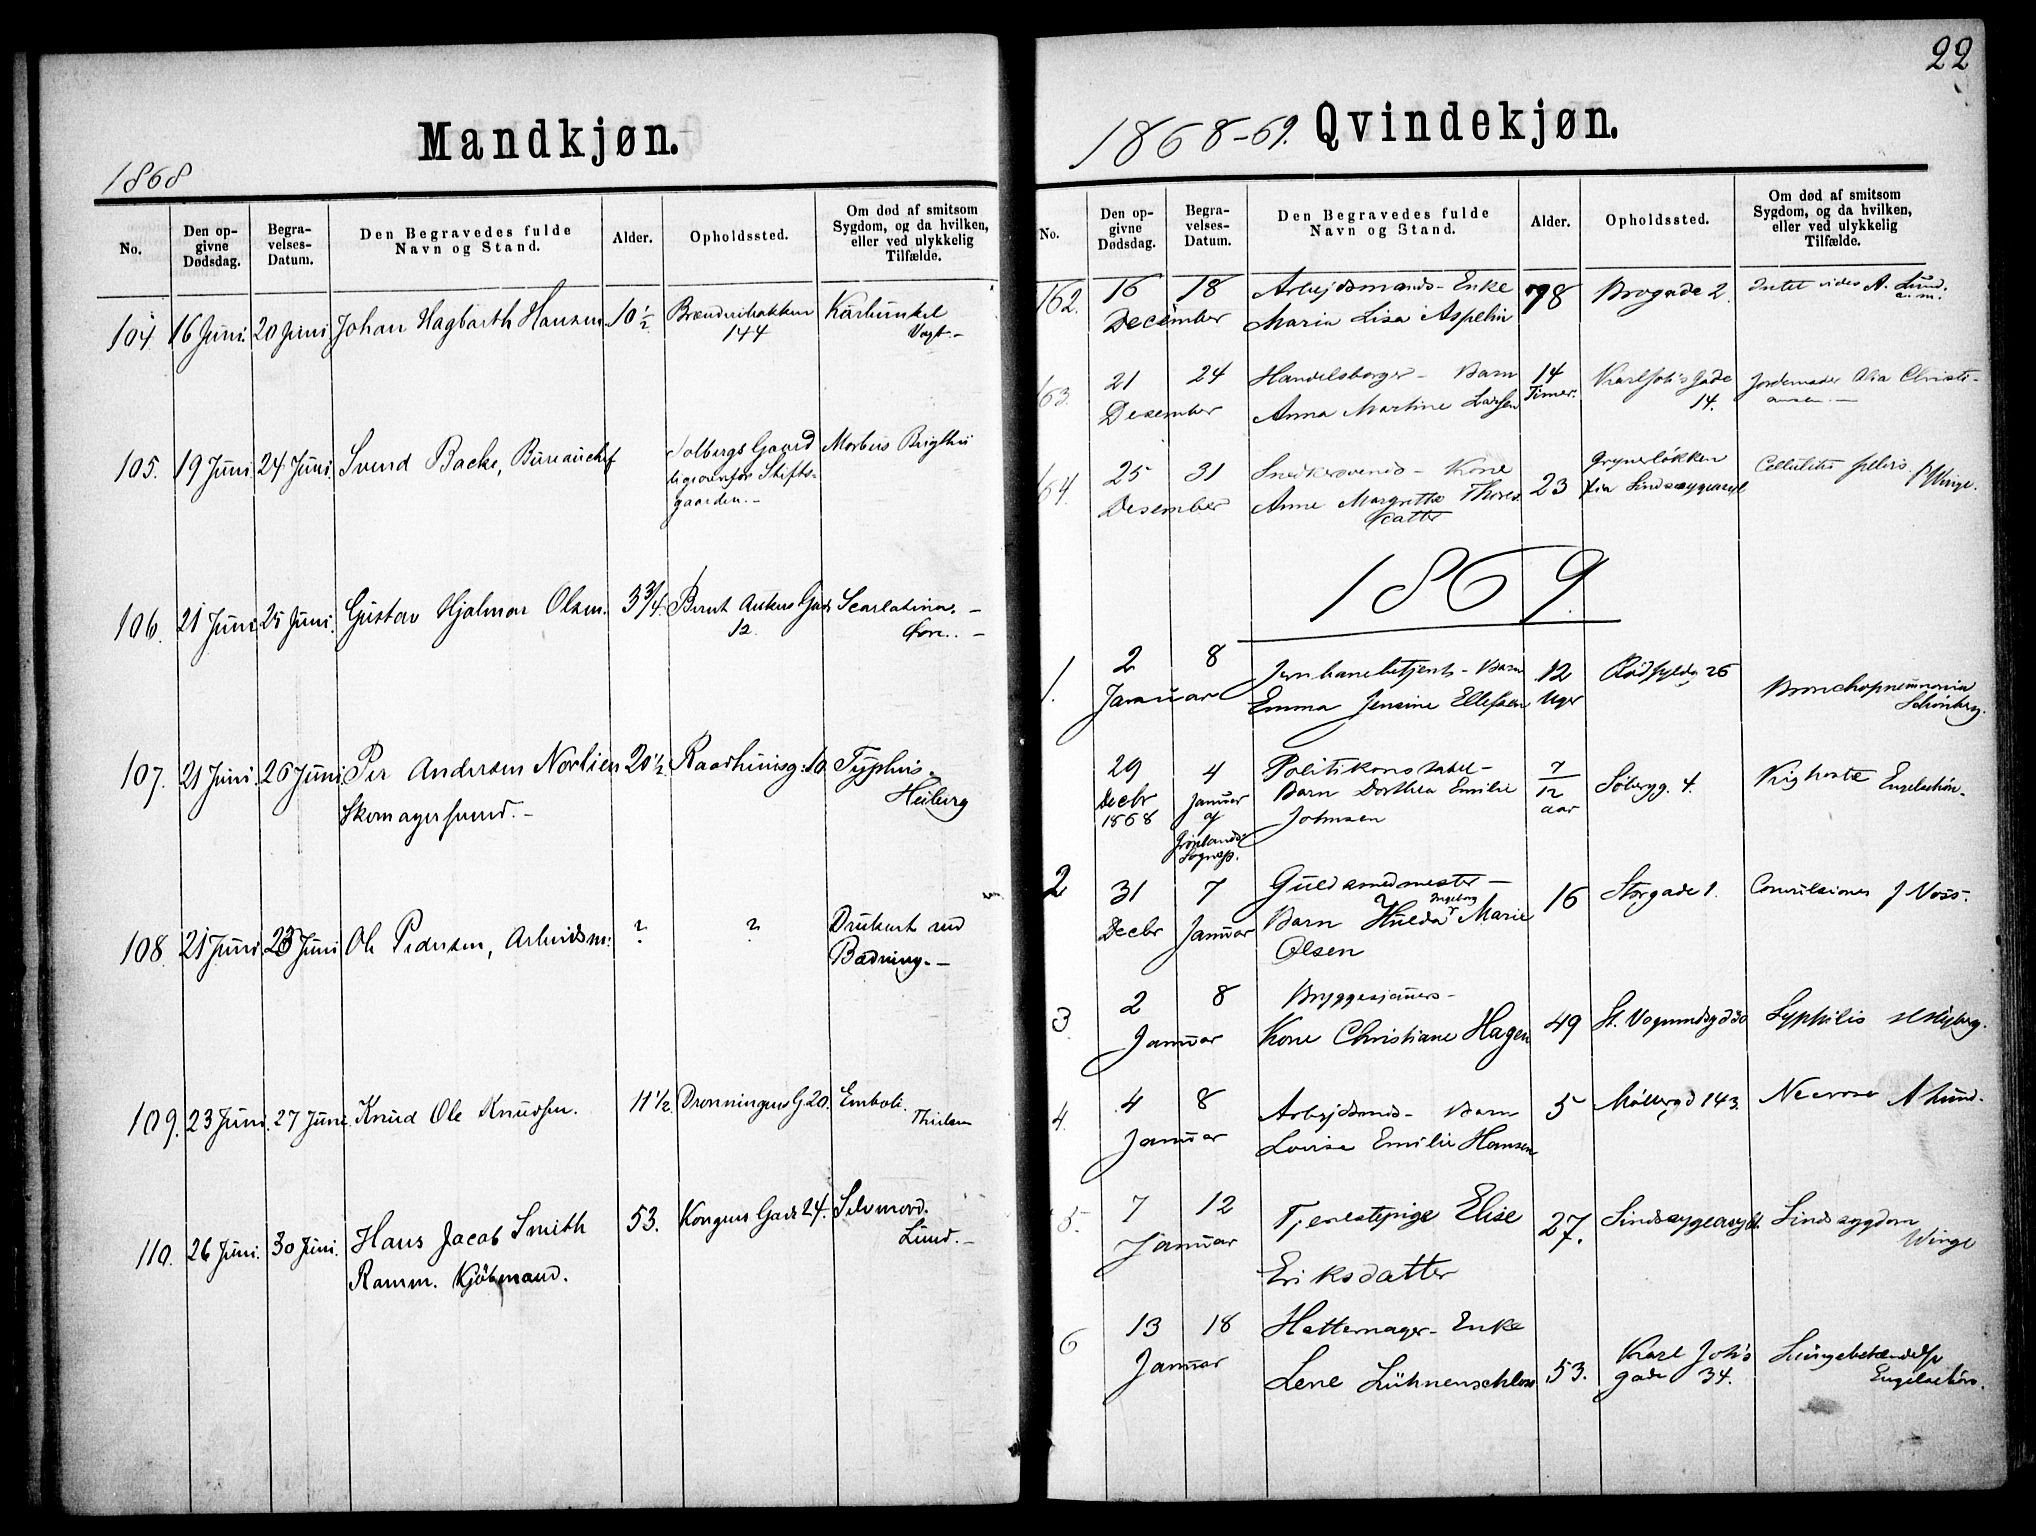 22
Mandkjøn.
1868
No.
Den op-
givne
Dødsdag.
Begra-
velses-
Datum.
Den Begravedes fulde
Navn og Stand.
Alder.
Opholdssted.
Om død af smitsom
Sygdom, og da hvilken,
eller ved ulykkelig
Tilfælde.
104. 16 Juni. 20 Juni Johan Hagbarth Hansen 10 1/2 Brænderibakken Karbunkel
144 Vogt.-
105. 19 Juni 24 Juni Svend Backe, Bureauchef Solbergs Gaard Morbus Brigthii
ligeovenfor Stifts-
gaarden.-
106. 21 Juni 25 Juni. Gustav Hjalmar Olsen. 3 3/4. Bernt Ankers Gade Scarlatina.-
12.
107. 21 Juni. 26 Juni Per Andersen Norlien 20 1/2. Raadhuusg: 10 Typhus.
Skomagersvend.- Heiberg
108. 21 Juni 23 Juni Ole Pedersen, Arbeidsm: ? ? Druknet ved
Badning.-
109. 23 Juni. 27 Juni Knud Ole Knudsen. 11 1/2 Dronningens G 20. Emboli.
Thulsen
110. 26 Juni. 30 Juni. Hans Jacob Smith 53. Kongens Gade 24. Selvmord.
Ramm. Kjøbmand. Lund.-
1868-69. Qvindekjøn.
No.
Den op-
givne
Dødsdag.
Begra-
velses-
Datum.
Den Begravedes fulde
Navn og Stand.
Alder.
Opholdssted.
Om død af smitsom
Sygdom, og da hvilken,
eller ved ulykkelig
Tilfælde.
162. 16 18 Arbejdsmands- Enke 78 Brogade 2. Intet vides A. Lund.
December Maria Lisa Aspelin
163. 21 24 Handelsborger- Barn 14 Karl Joh's Gade Jordemoder Christi-
Desember Anna Martine Larsen Timer. 14. ansen.-
164. 25 31 Snedkersvends- Kone Grynerløkken Cellulitis pelvis.
Desember Anne Margrethe Thores 23 Sindssygeasyl Winge.
datter
1869.
1. 2 8 Jernbanebetjents- Barn 12 Rødfyldg 26
Januar Emma Jensine Ellefsen Uger Bronchopneumonia
Schønberg.
29 4 Politikonstabel- 7/12 Søbergg. 4. Kighoste Engelschøn.
Decbr Januar Barn Dorthea Emilie aar
1868 af Johnsen
Grønlands
Sognep.
2 31 7 Guldsmedmester- 16 Storgade 1. Convulsioner J Voss.
Ingeborg
Decbr Januar Barn Hulda Marie
Olsen
3 2 8 Bryggesjauers-
Januar Kone Christiane Hagen 49 St. Vognmdsgd 30 Syphilis
4. 4 8 Arbejdsmds- Barn 5 Møllergd 143. Necrose A Lund.
Januar Lovise Emilie Hansen
5. 7 12 Tjenestepige Elise 27. Sindssygeasyl. Sindssygdom
Januar Winge
Eriksdatter
6 13 18 Hattemager- Enke
Januar Lene Lühnenschloss 53. Karl Joh's Lungebetændelse
gade 34. Engelschøn.